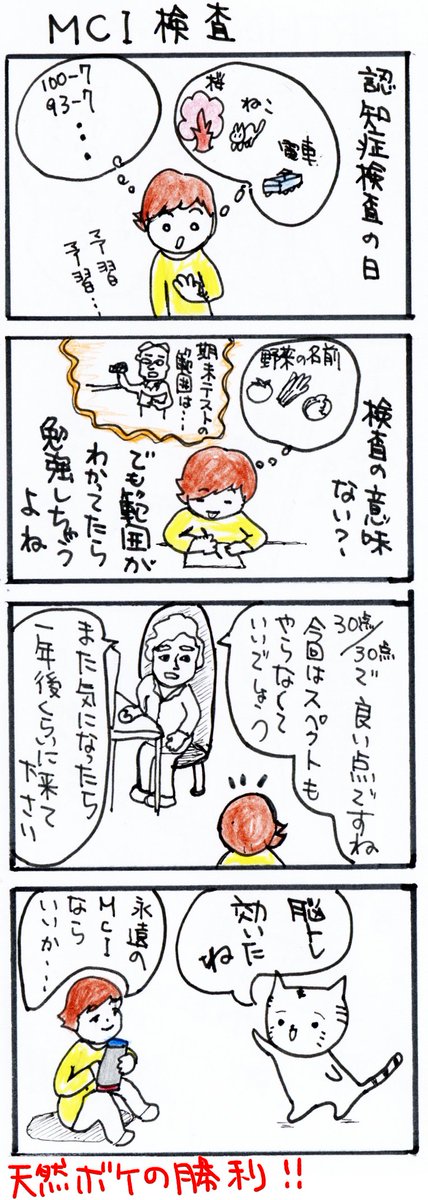 MCI検査
認知症検査の日
桜
ねこ
電車
100-7
93-7
・
・
・
予習
予習…
検査の意味
ない?
野菜の名前
期末テストの
範囲は…
でも範囲が
わかてたら
勉強しちゃう
よね
30点/30点で良い点ですね
今回はスペクトも
やらなくて
いいでしょう
また気になったら
一年後くらいに来て
ださい
脳トレ
効いた
ね
永遠の
MCI
なら
いいか…
天然ボケの勝利!!